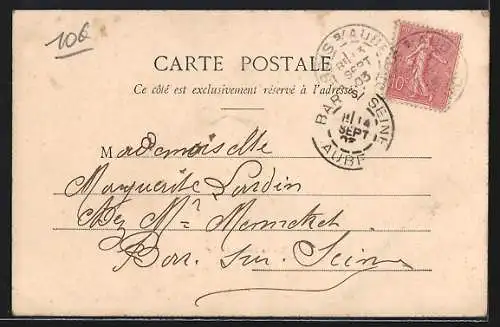 10€
CARTE POSTALE
Ce côté est exclusivement réservé à l'adresse
BAR S/ AUBE
13
SEPT
03
BAR S/ SEINE
14
SEPT
AUBE
10c
Mademoiselle
Marguerite
Chez Mr
Bar sur Seine